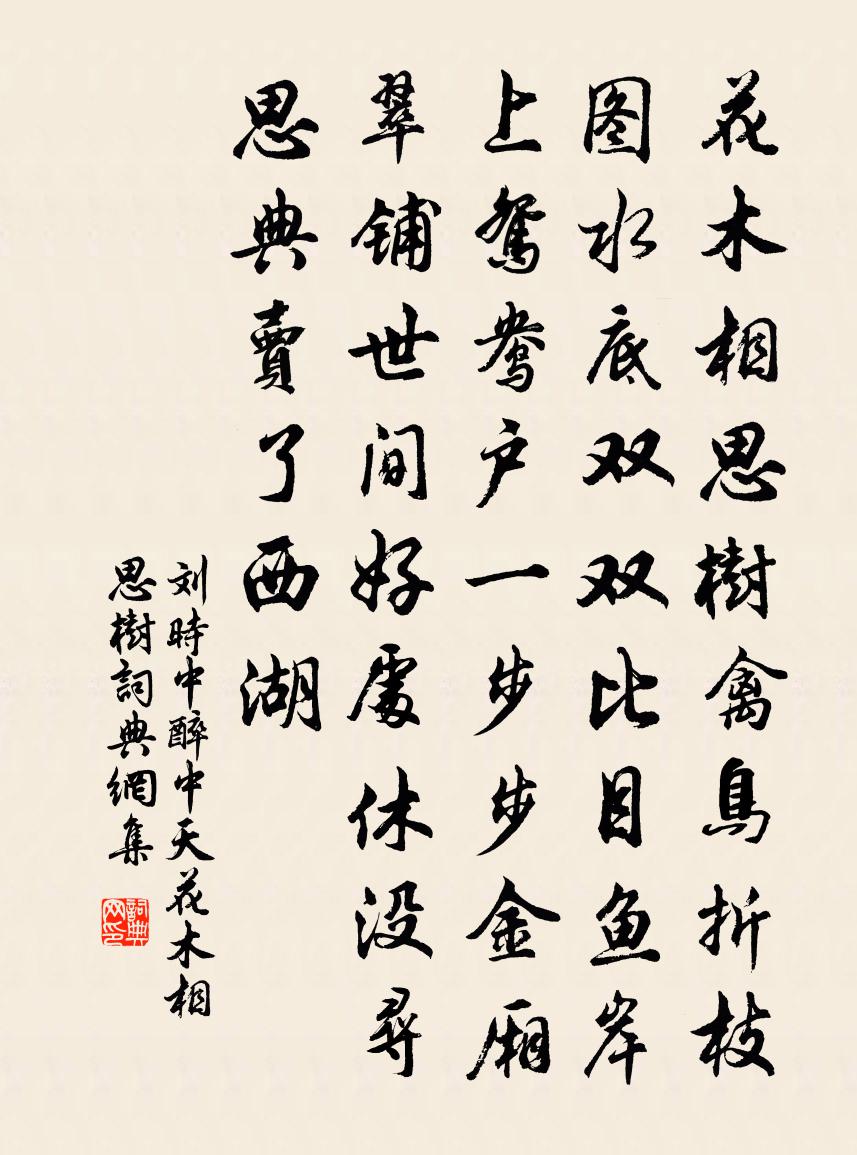 花木相思樹禽鳥折枝
图水底双双比目鱼岸
上鴛鴦户一步步金厢
翠铺世间好處休没尋
思典賣了西湖
刘時中醉中天花木相
思樹詞典網集
詞典网印